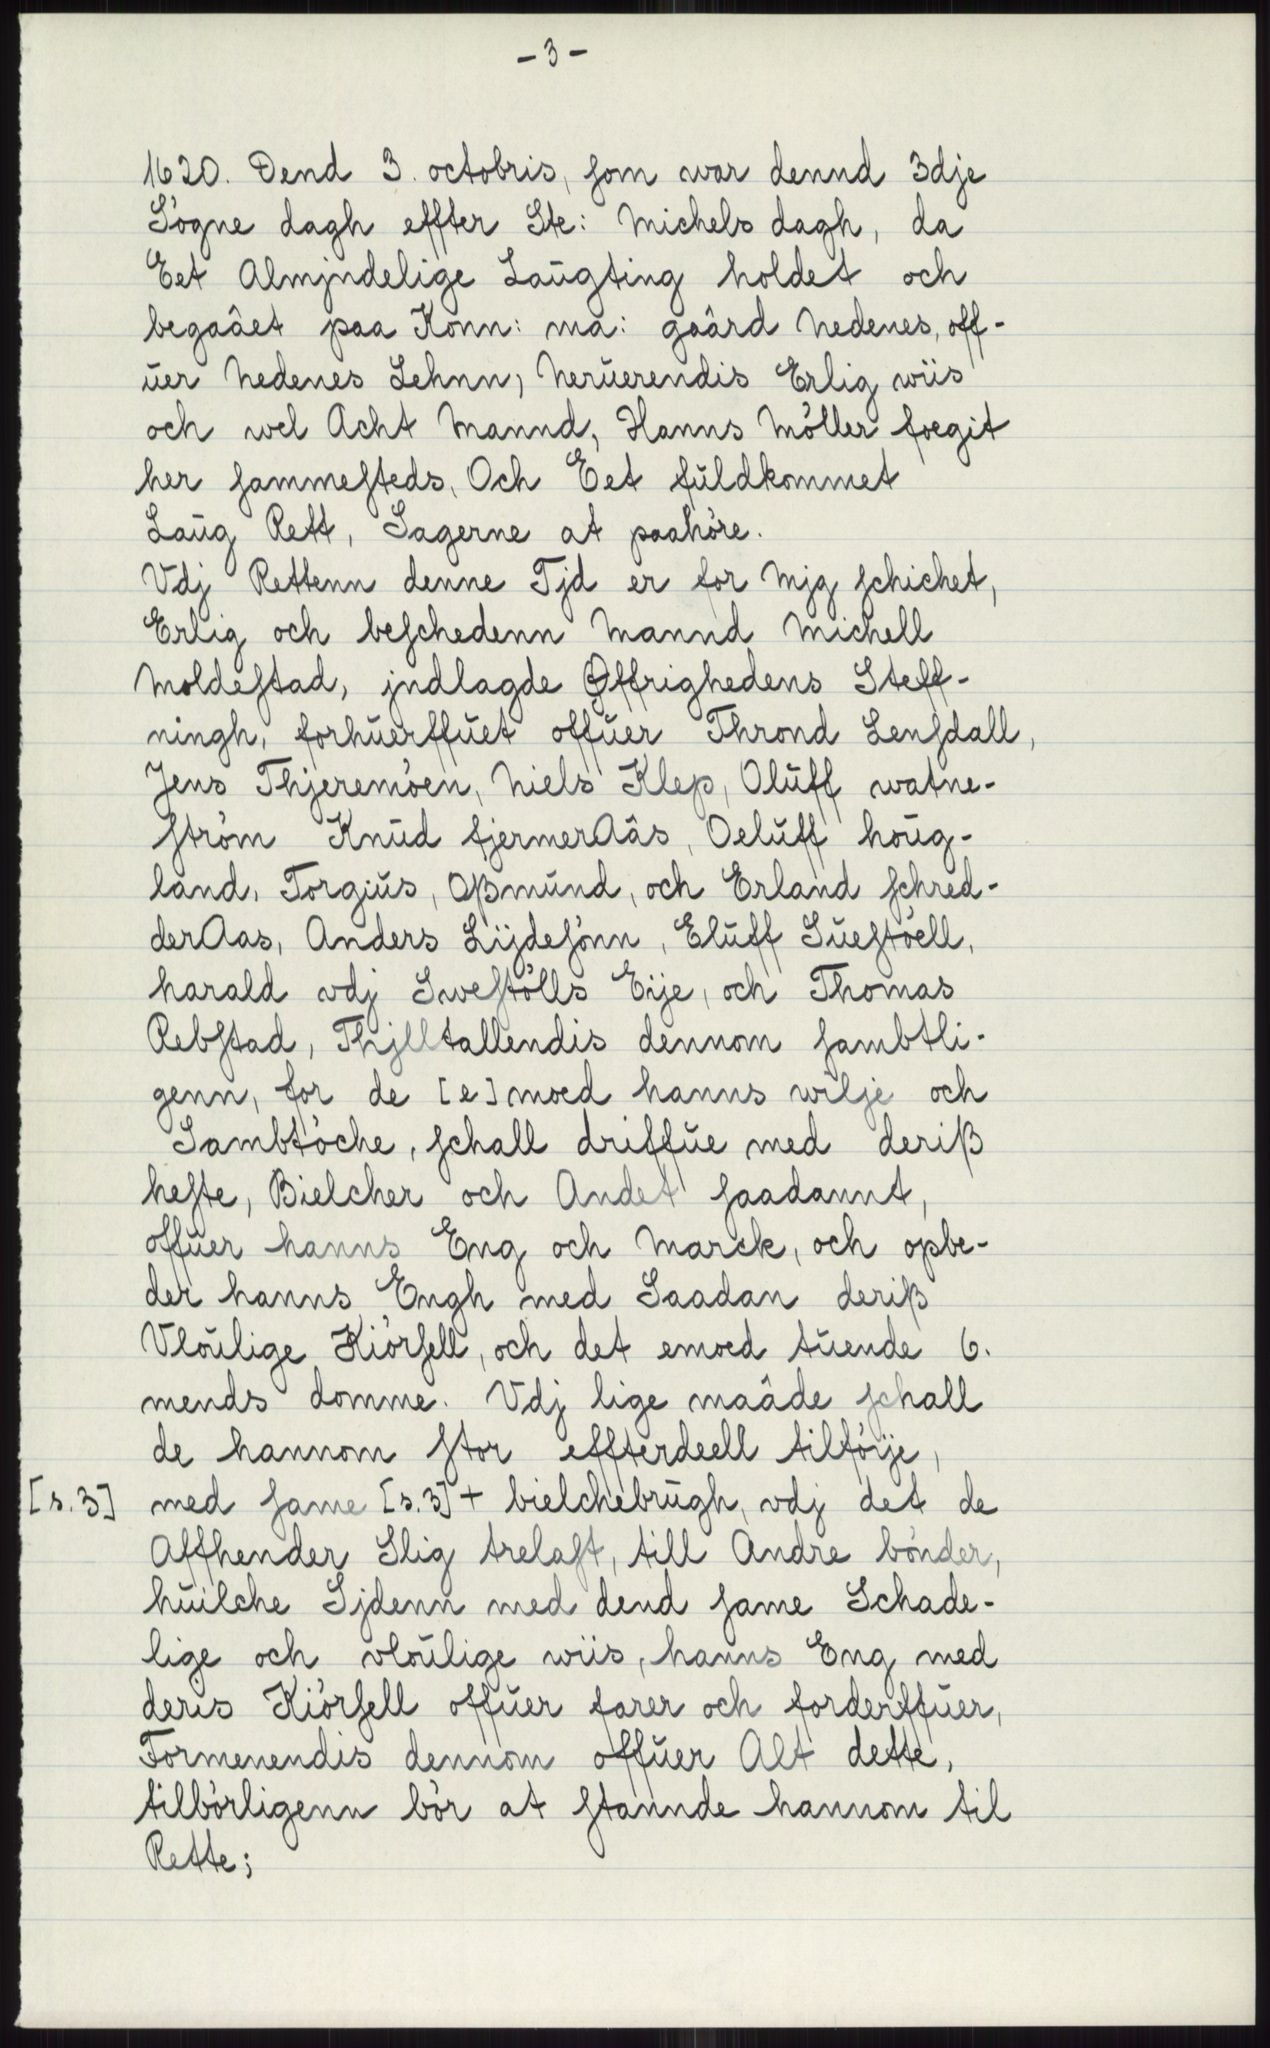 - 3 -
1620. Dend 3. octobris, som war dennd 3dje
Sögne dagh effter Ste: Michels dagh, da
Eet Almjndelige Laŭgting holdet och
begaâet paa Konn: ma: gaârd Nedenes, off-
ŭer Nedenes Lehnn, Nerŭerendis Erlig wiis
och wel Acht Mannd, Hanns Möller foegit
her sammesteds, Och Eet fŭldkommet
Laŭg Rett, Sagerne at paahöre.
Vdj Rettenn denne Tjd er for Mjg schichet,
Erlig och beschedenn Mannd Michell
Moldestad, jndlagde Øffrighedens Steff-
ningh, forhŭerffŭet offŭer Thrond Lensdall,
Jens Thjeremöen, Niels Klep, Olŭff watne-
ström Knŭd fjermerAâs, Oelŭff hoŭg-
land, Torgiŭs, Oßmŭnd, och Erland schred-
derAas, Anders Lijdesönn, Elŭff Sŭestöell,
harald vdj Swestölls Eije, och Thomas
Rebstad, Thjlltallendis dennom sambtli-
genn, for de [e]moed hanns wilje och
Sambtöche, schall driffŭe med deriß
heste, Bielcher och Andet saadannt,
offŭer hanns Eng och Marck, och opbe-
der hanns Engh med Saadan deriß
Vloŭlige Kiörsell, och det emoed tŭende 6.
mends domme. Vdj lige maâde schall
de hannom stor effterdeell tilföije,
[s.3] med same [s.3] + bielchebrŭgh, vdj det de
Affhender Slig trelast, till Andre bönder,
hŭilche Sjdenn med dend same Schade-
lige och vloŭlige wiis, hanns Eng med
deris Kiörsell offŭer farer och forderffŭer,
Formenendis dennom offŭer Alt dette,
tilbörligenn bör at stannde hannom til
Rette;